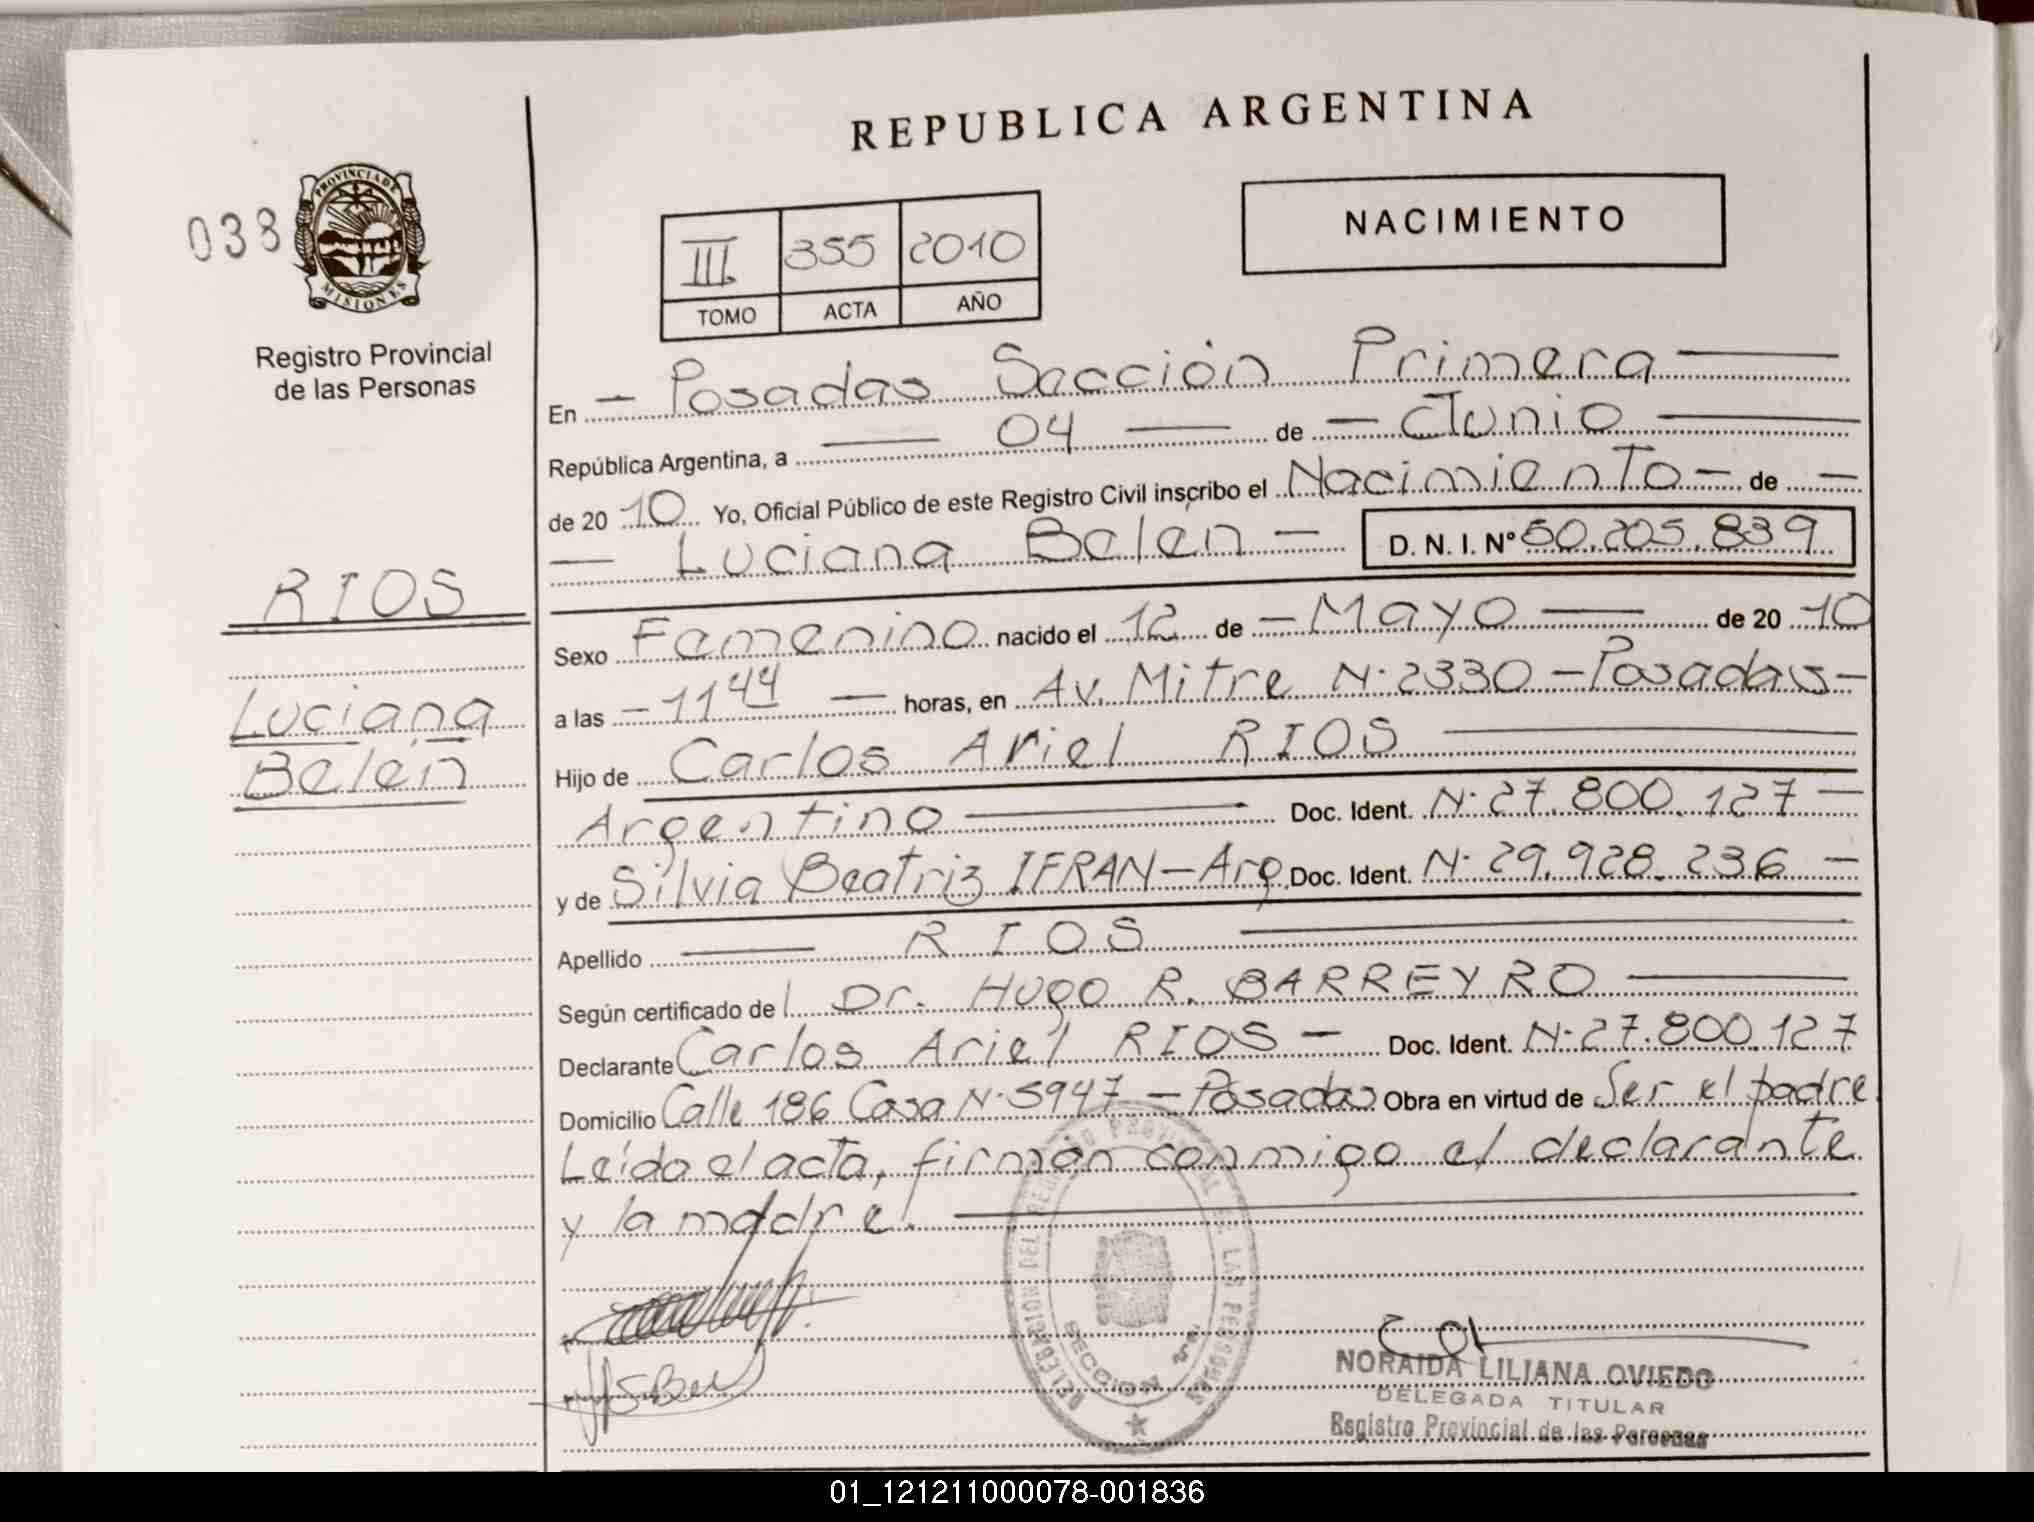 REPUBLICA ARGENTINA
038
PROVINCIA DE
MISIONES
Registro Provincial
de las Personas
III 355 2010
TOMO ACTA AÑO
NACIMIENTO
En - Posadas Sección Primera
República Argentina, a 04 de - Junio
de 20 10 Yo, Oficial Público de este Registro Civil inscribo el Nacimiento - de -
- Luciana Belén - D. N. I. Nº 50.205.839
RIOS
Luciana
Belén
Sexo Femenino nacido el 12 de - Mayo de 20 10
a las - 11 44 - horas, en Av. Mitre N· 2330 - Posadas -
Hijo de Carlos Ariel RIOS
Argentino Doc. Ident. N· 27.800.127 -
y de Silvia Beatriz IFRAN - Arg. Doc. Ident. N· 29.928.236 -
Apellido RIOS
Según certificado del Dr. Hugo R. BARREYRO
Declarante Carlos Ariel RIOS - Doc. Ident. N· 27.800.127
Domicilio Calle 186 Casa N· 5947 - Posadas Obra en virtud de Ser el padre
Leída el acta, firman conmigo el declarante
y la madre.
DELEGACION DEL REGISTRO PROVINCIAL DE LAS PERSONAS
SECCION
NORAIDA LILIANA OVIEDO
DELEGADA TITULAR
Registro Provincial de las Personas
01_121211000078-001836